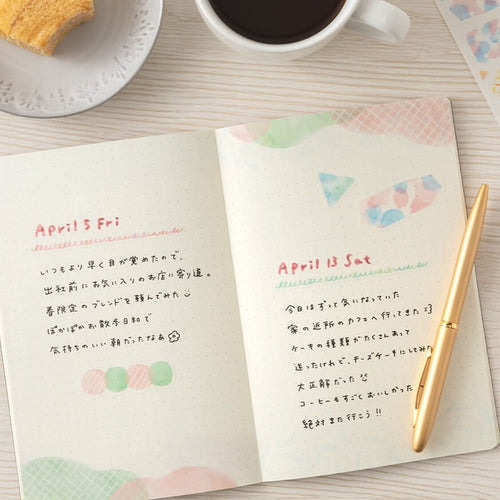 April 5 Fri
いつもより早く目が覚めたので、
出社前にお気に入りのお店に寄り道。
春限定のブレンドを頼んでみた
ぽかぽかお散歩日和で
気持ちのいい朝だったなぁ
April 13 Sat
今日はずって気になっていた
家の近所のカフェへ行ってきた
ケーキの種類がたくさんあって
迷ったけれど、チーズケーキにしてみ
大正解だった
コーヒーもすごくおいしかった
絶対また行こう!!